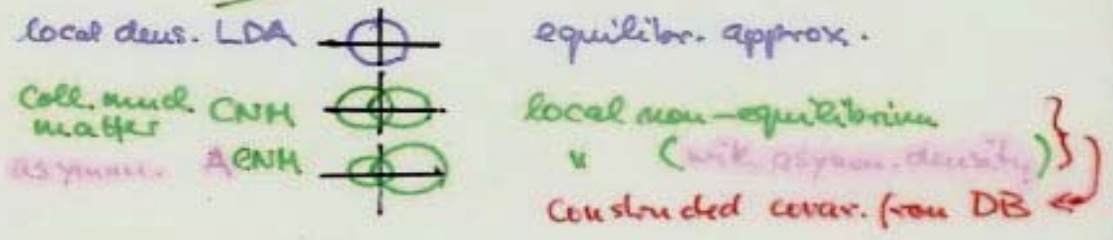 local dens. LDA equilibr. approx.
Coll. nucl. matter CNM local non-equilibrium
asymm. ACNM " (with asymm. density)
Constructed covar. from DB